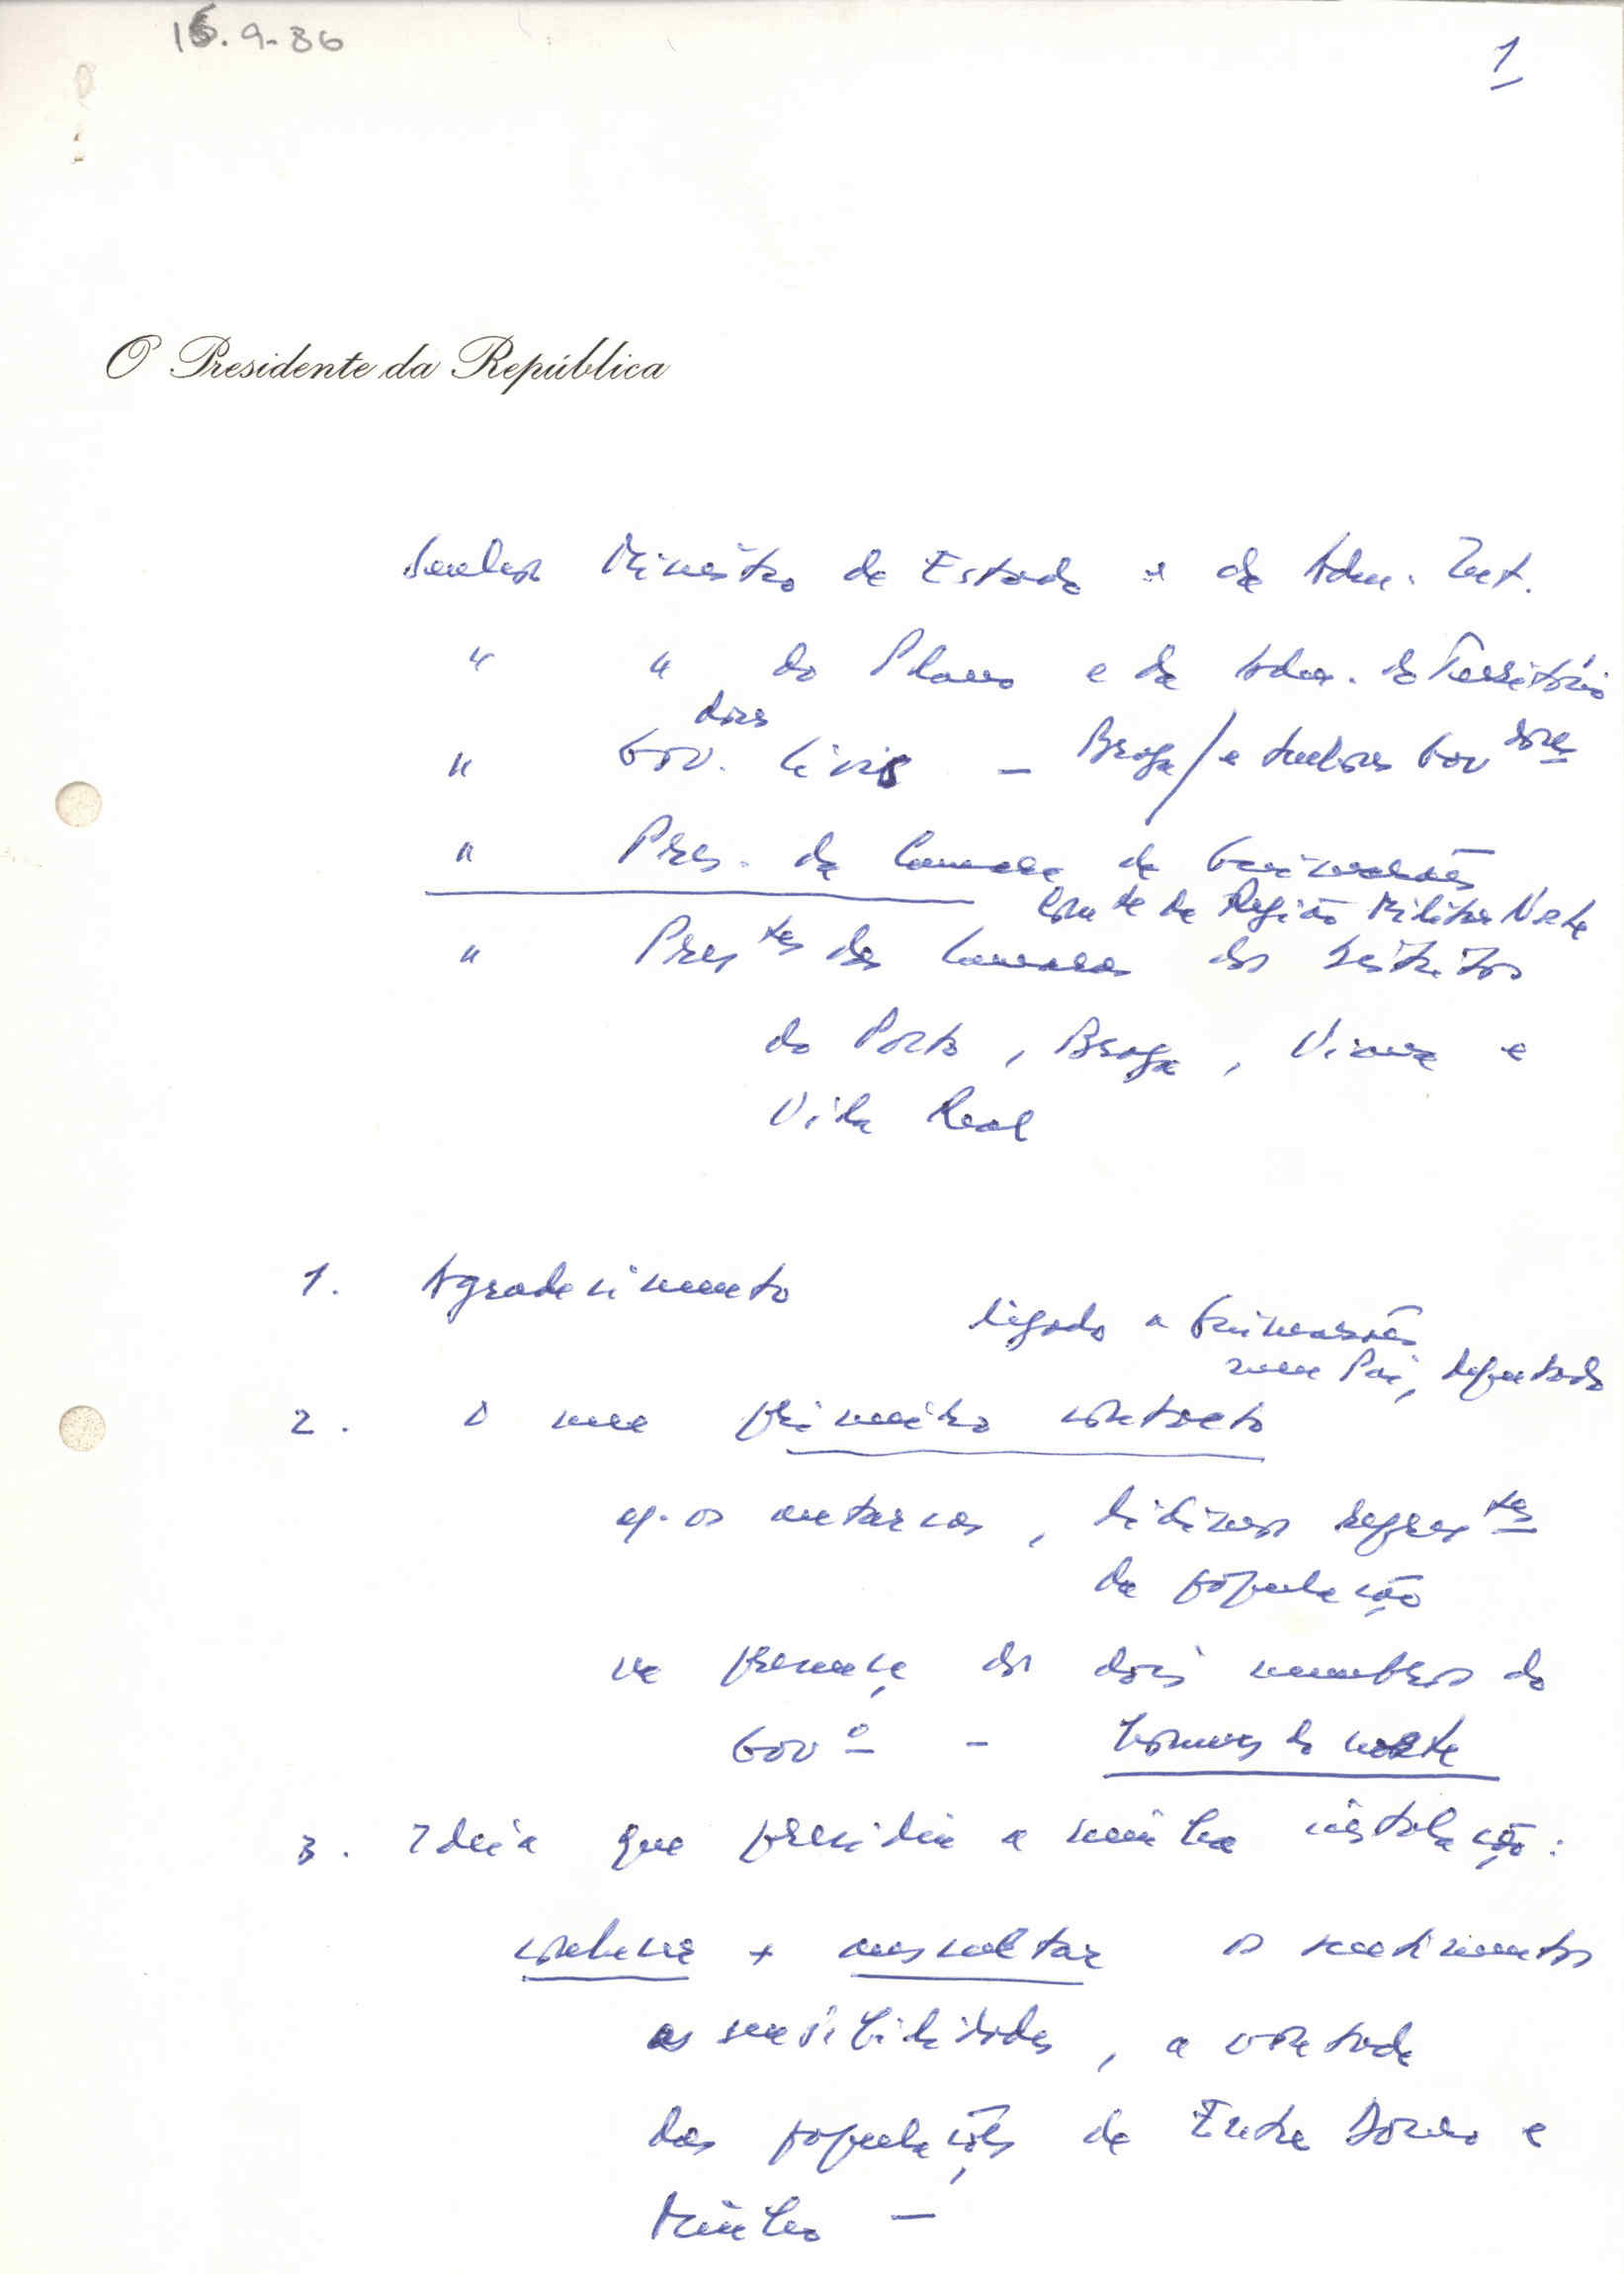 16.9-86
1
O Presidente da República
Senhor Ministro de Estado e da Adm. Int.
" " do Plano e da Adm. do Território
dores
" Gov. Civis - Braga / e senhores Gov dores
" Pres. da Camara de Guimarães
Comte da Região Militar Norte
" Prestes das Camaras dos Distritos
do Porto, Braga, Viana e
Vila Real
1. Agradecimento
ligado a Guimarães
meu Pai, deputado
2. O meu primeiro contacto
c/. os autarcas, lidimos represtes
da população
na presença dos dois membros do
Govº - homens do norte
3. Ideia que presidiu a minha instalação:
conhecer + auscultar os sentimentos
as sensibilidades, a vontade
das populações de Entre Douro e
Minho -